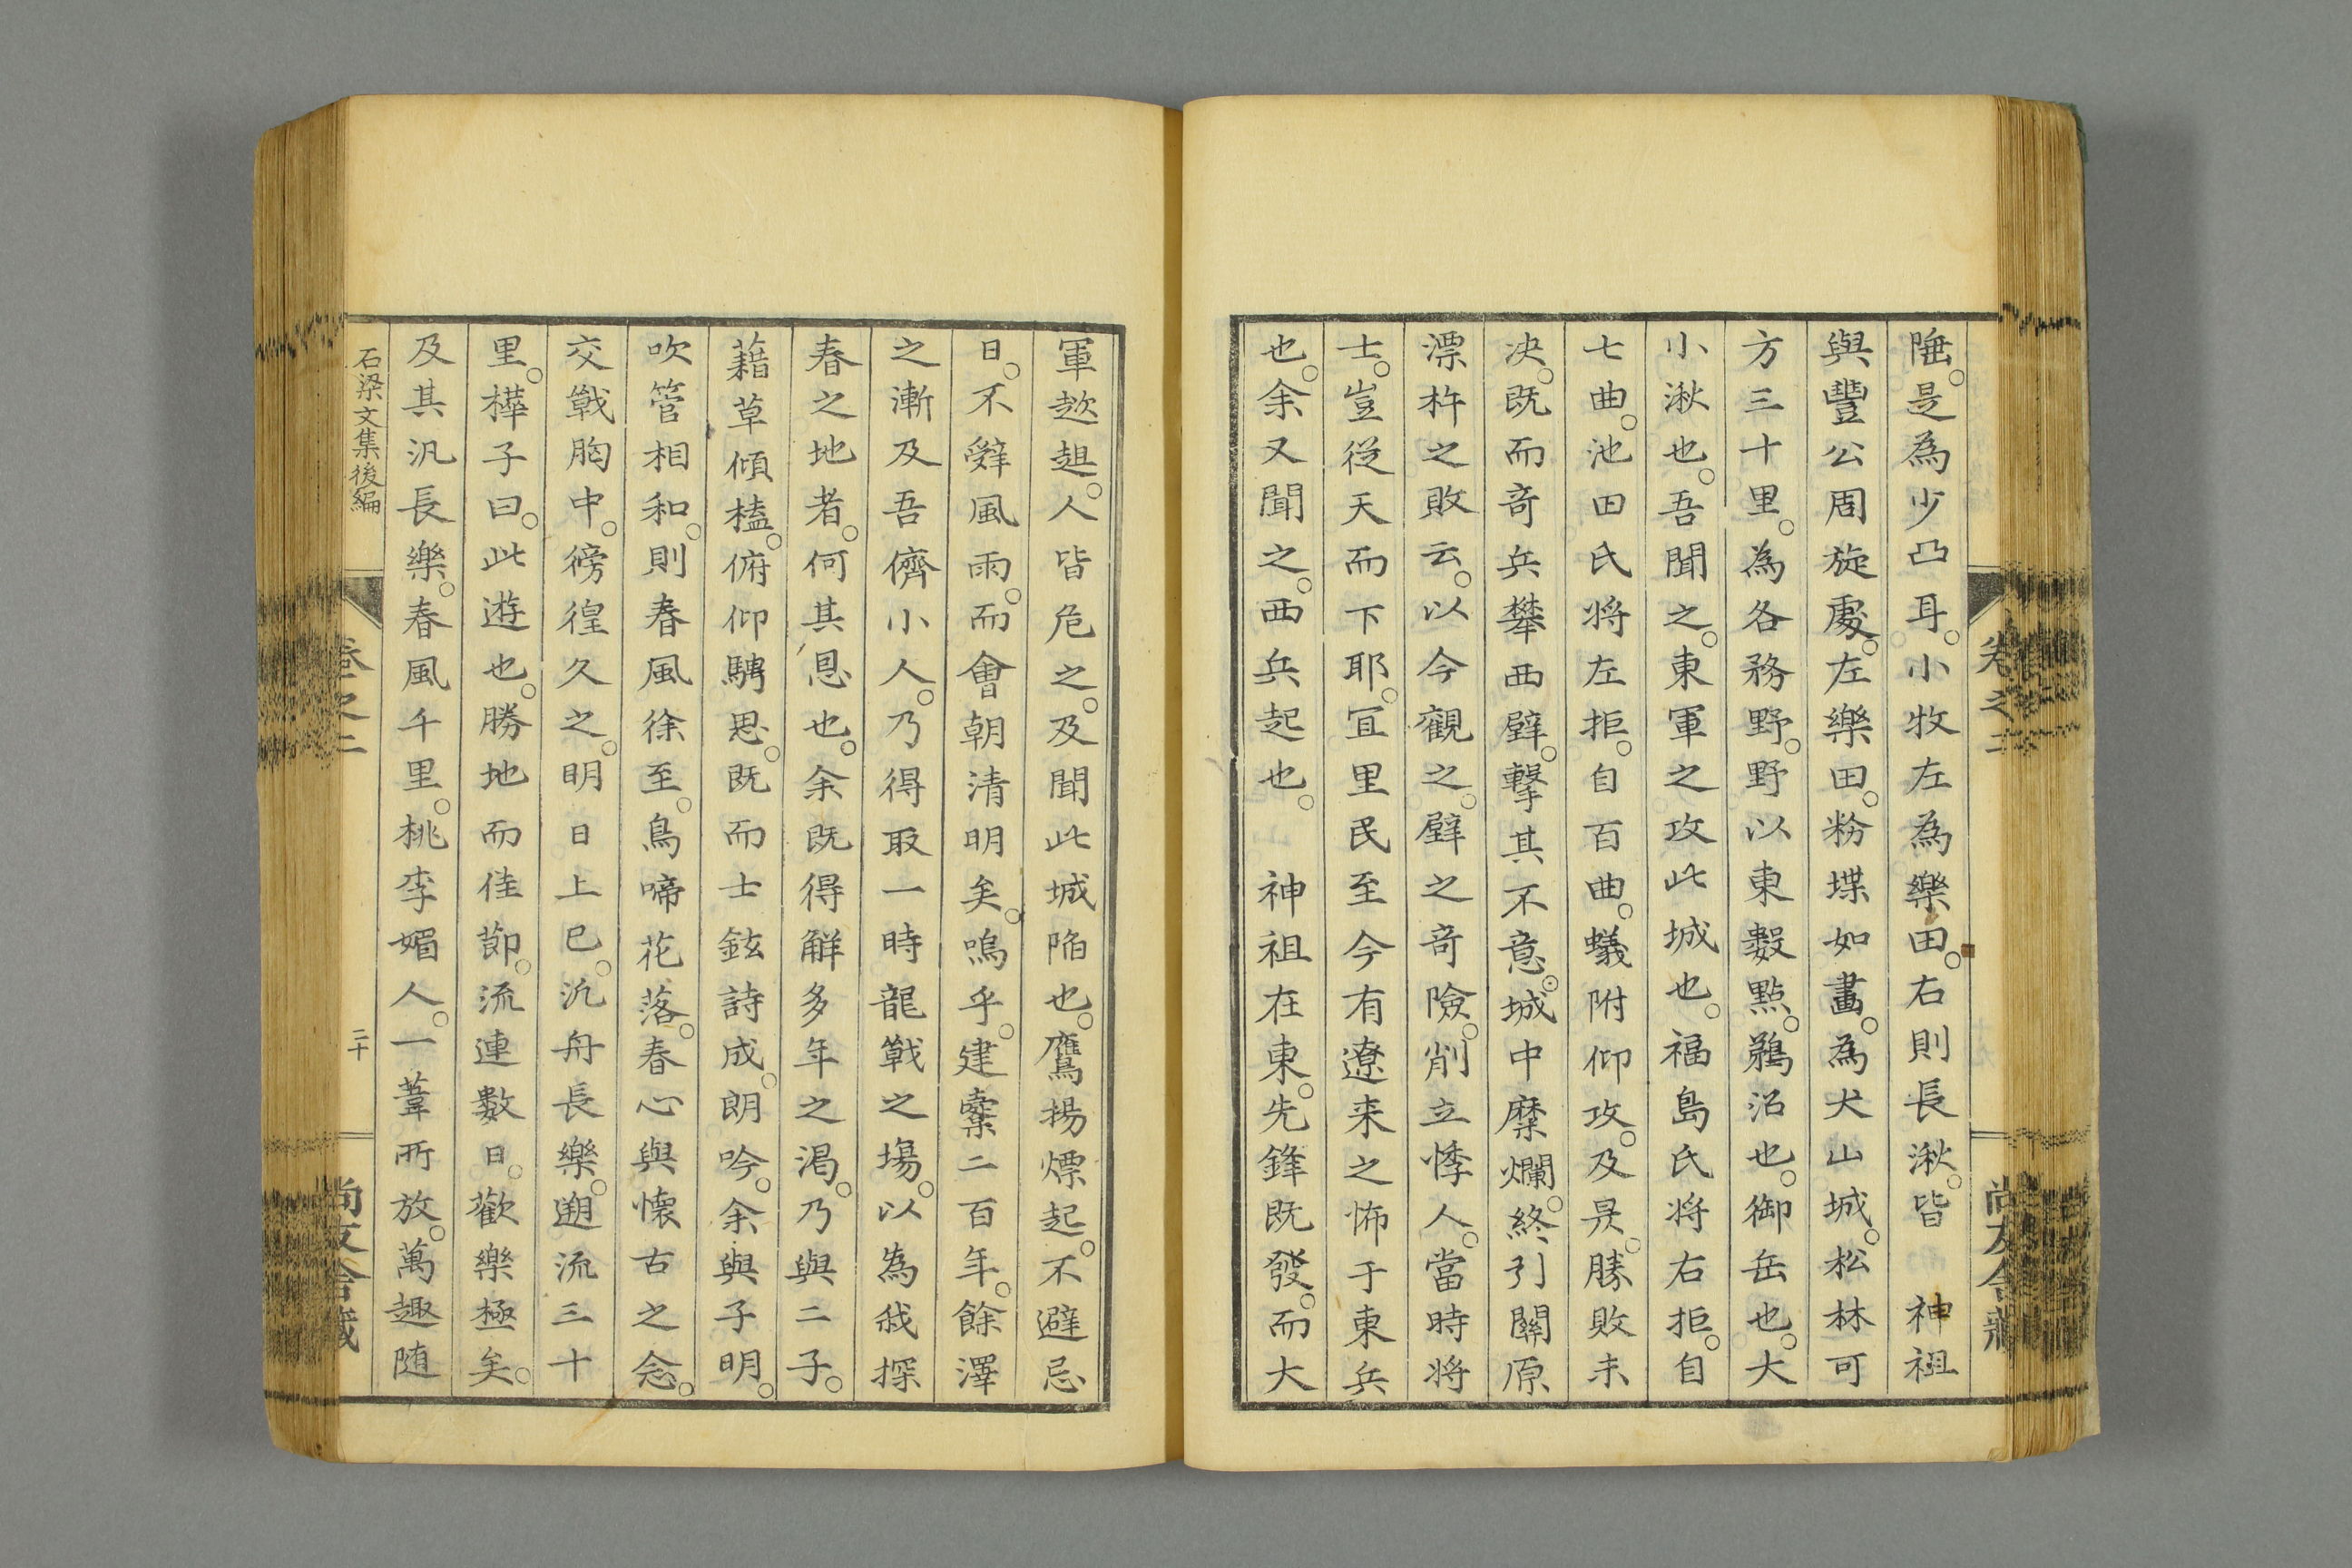 陲。是為少凸耳。小牧左為樂田。右則長湫。皆　神祖
與豐公周旋處。左樂田。粉堞如畵。為犬山城。松林可
方三十里。為各務野。野以東數點。鵜沼也。御岳也。大
小湫也。吾聞之。東軍之攻此城也。福島氏将右拒。自
七曲。池田氏将左拒。自百曲。蟻附仰攻。及昃。勝敗未
决。既而竒兵攀西壁。擊其不意。城中糜爛。終引關原
漂杵之敗云。以今觀之。壁之竒險。削立悸人。當時将
士。豈従天而下耶。冝里民至今有遼来之怖于東兵
也。余又聞之。西兵起也。　神祖在東。先鋒既發。而大
軍趑趄。人皆危之。及聞此城陥也。鷹揚熛起。不避忌
日。不辤風雨。而會朝清明矣。嗚乎。建櫜二百年。餘澤
之漸及吾儕小人。乃得取一時龍戰之塲。以為我探
春之地者。何其恩也。余既得觧多年之渇。乃與二子。
藉草傾榼。俯仰騁思。既而士鉉詩成。朗吟。余與子明。
吹管相和。則春風徐至。鳥啼花落。春心與懐古之念。
交戰胸中。徬徨久之。明日上巳。汎舟長樂。遡流三十
里。樺子曰。此遊也。勝地而佳節。流連數日。歡樂極矣。
及其汎長樂。春風千里。桃李媚人。一葦所放。萬趣随
石梁文集後編
卷之二
二十
尚友舎藏